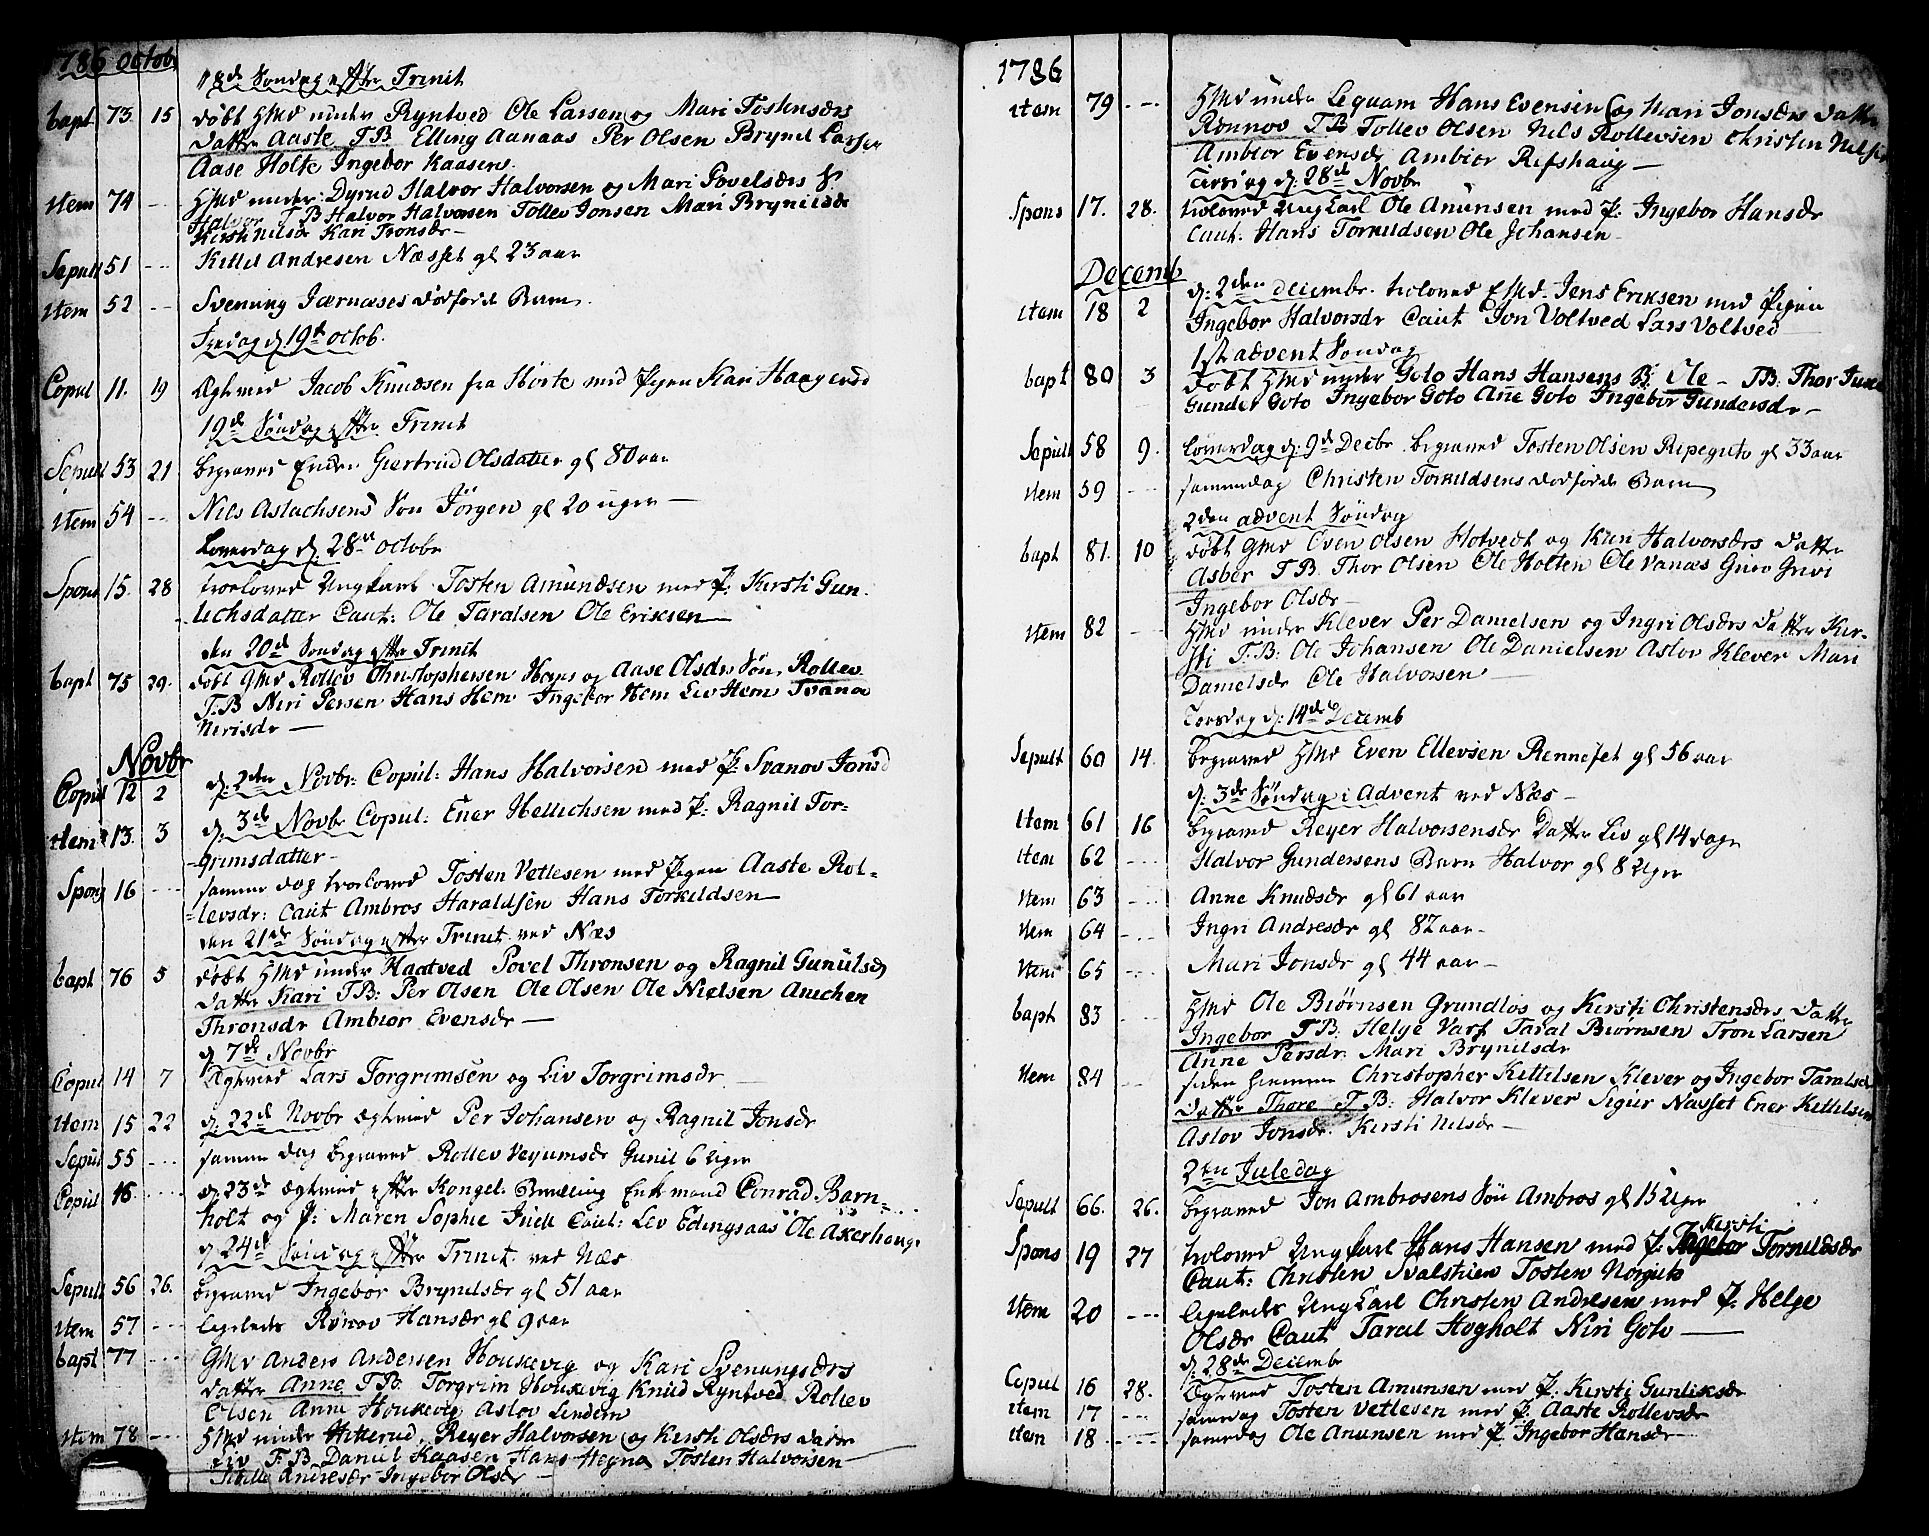 1786 Octobr
18de Søndag efter Trinit
bapt 73 15 døbt HMd under Ryntved Ole Larsen og Mari Tostensdrs
datter Aaste TB Elling Aanaas Per Olsen Brynil Larsen
Aase Holte Ingebor Kaasene
item 74 --- HMd under Dyrud Halvor Halvorsen og Mari Povelsdrs S.
Halvor T B Halvor Halvorsen Tollev Jonsen Mari Brynilsdr
Kirsti Nilsdr Kari Tronsdr —
Sepult 51 --- Kittil Andresen Næsset gl 23 aar
item 52 --- Svenung Jærnæses dødfødde Barn
Torsdag d 19de octob.
Copul 11. 19 Ægteviet Jacob Knudsen fra Hørte med Pigen Kari Haagensd
19de Søndag efter Trinit
Sepult 53 21 begravet Enken Giertrud Olsdatter gl 80 aar
item 54 --- Nils Aslachsens Søn Jörgen gl 20 uger —
Löverdag d. 28de octobr
Spons 15. 28 trolovet Ungkarl Tosten Amundsen med P. Kirsti Gun-
lichsdatter Caut: Ole Taralsen Ole Eriksen —
den 20de Søndag efter Trinit
bapt 75 29. døbt GMd Rollev Christophersen Hems og Aase Olsdrs Søn Rollev
T.B Niri Persen Hans Hem Ingebor Hem Liv Hem Svanov
Nerisdr —
Novbr
Copul 12 2 d. 2den Novbr. Copul: Hans Halvorsen med P. Svanov Jonsd
item 13. 3 d. 3de Novbr Copul: Ener Hellichsen med P. Ragnil Tor-
grimsdatter —
Spons 16 --- samme dag trolovet Tosten Vetlesen med Pigen Aaste Rol-
levsdr: Caut Ambros Haraldsen Hans Torkildsen —
den 21de Søndag efter Trinit ved Næs
bapt 76 5 døbt HMd under Haatved Povel Thronsen og Ragnil Gunulsd
datter Kari TB: Per Olsen Ole Olsen Ole Nielsen Anichen
Thronsdr Ambior Evensdr —
d 7de Novbr
Copul 14 7 Ægteviet Lars Torgrimsen og Liv Torgrimsdr
item 15 22 d. 22de Novbr ægteviet Per Johansen og Ragnil Jonsdr
Sepul 55 --- samme dag begravet Rollev Vegumsdr Gunil 6 uger
Copul 16. --- d. 23de ægteviet efter Kongel: Bevilling Enkemand Conrad Barn-
holt og P: Maren Sophie Caut: Liv Edingsaas Ole Akerhaug
d 24de Søndag efter Trinit ved Næs
Sepult 56 26. begravet Ingebor Brynilsdr gl 51 aar
item 57 --- ligeledes Rønov Hansdr gl 9 aar
bapt 77 --- GMd Anders Andersen Houkevig og Kari Svenungsdrs
datter Anne TB. Torgrim Houkevig Knud Ryntved Rollev
Olsen Anne Houkevig Aslov Lindem
item 78 --- HMd under Hitterud Reyer Halvorsen og Kirsti Olsdrs datter
Liv F.B Daniel Kaasen Hans Hegna Tosten Halvorsen —
Andresdr Ingebor Olsdr —
1786
item 79 --- HMd under Lequam Hans Evensen og Mari Jonsdrs datter
Rønnov TB Tollev Olsen Nils Rollevsen Christen Nilsen
Ambior Evensdr Ambior Refshaug —
Tirsdag d: 28de Novbr
Spons 17. 28. trolovet Ungkarl Ole Anunsen med P: Ingebor Hansdr
Caut: Hans Torkildsen Ole Johansen
Decemb
item 18 2 d: 2den Decembr. trolovet EMd. Jens Eriksen med Pigen
Ingebor Halvorsdr Caut Jon Voltved Lars Voltved
1ste advent Søndag
bapt 80 3 døbt HMd under Goto Hans Hansens B. Ole — TB: Thor
Gunder Goto Ingebor Goto Ane Goto Ingebor Gundersdr —
Sepult 58 9. Löverdag d: 9de Decbr begravet Tosten Olsen Ripegutu gl 33 aar
item 59 --- sammedag Christen Torkildsens dødfødde Barn
2den advent Søndag
bapt 81. 10 døbt GMd Even Olsen Hotvedt og Kari Halvorsdrs datter
Asber T B. Thor Olsen Ole Holten Ole Vanaas Guro Grivi
Ingebor Olsdr —
item 82 --- HMd under Klever Per Danielsen og Ingri Olsdrs datter Kir-
sti T.B: Ole Johansen Ole Danielsen Aslov Klever Mari
Danielsdr Ole Halvorsen —
Torsdag d: 14de Decemb
Sepult 60 14. begravet HMd Even Ellevsen Rennefet gl 56 aar
d. 3de Søndag i Advent ved Næs —
item 61 16 begravet Reyer Halvorsensdr Datter Liv gl 14 dage
item 62 --- Halvor Gundersens Barn Halvor gl 8 Uger
item 63 --- Anne Knudsdr gl 61 aar
item 64 --- Ingri Andresdr gl 82 aar —
item 65 --- Mari Jonsdr gl 44 aar —
bapt 83 --- HMd Ole Biørnsen Grundløs og Kirsti Christensdrs datter
Ingebor T B: Helge Varp Taral Biørnsen Tron Larsen
Anne Persdr. Mari Brynilsdr
item 84 --- siden hiemme Christopher Kittilsen Klever og Ingebor Taralsdr
datter Thore T.B: Halvor Klever Sigur Nasset Ener Kittilsen
Aslov Jonsdr. Kirsti Nilsdr —
2den Juledag
Sepult 66. 26. begravet Jon Ambrosens Søn Ambros gl 15 Uger
Spons 19 27 trolovet Ungkarl Hans Hansen med P: Ingebor Kirsti Torkildsdr
Caut: Christen Svalstuen Tosten Norgutu
item 20 --- ligeledes Ungkarl Christen Andresen med P. Helge
Olsdr Caut Taral Hogholt Niri Goto —
d. 28de Decembr
Copul 16 28. Ægteviet Tosten Amunsen med P. Kirsti Gunliksdr
item 17 --- samedag Tosten Vetlesen med P. Aaste Rollevsdr
item 18 --- samedag Ole Anunsen med P Ingebor Hansdr —